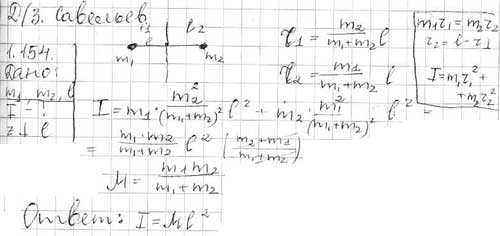 Д/З. Савельев.
1.154.
Дано:
m₁ m₂, l
I - ?
z ⊥ l
r₁ l r₂
m₁ m₂
r₁ = m₂/(m₁+m₂) l
r₂ = m₁/(m₁+m₂) l
m₁r₁ = m₂r₂
r₂ = l - r₁
I = m₁r₁² + m₂r₂²
I = m₁ · m₂²/(m₁+m₂)² l² + m₂ · m₁²/(m₁+m₂)² l² =
= m₁·m₂/(m₁+m₂) l² (m₂+m₁/m₁+m₂)
M = m₁m₂/(m₁+m₂)
Ответ: I = Ml²